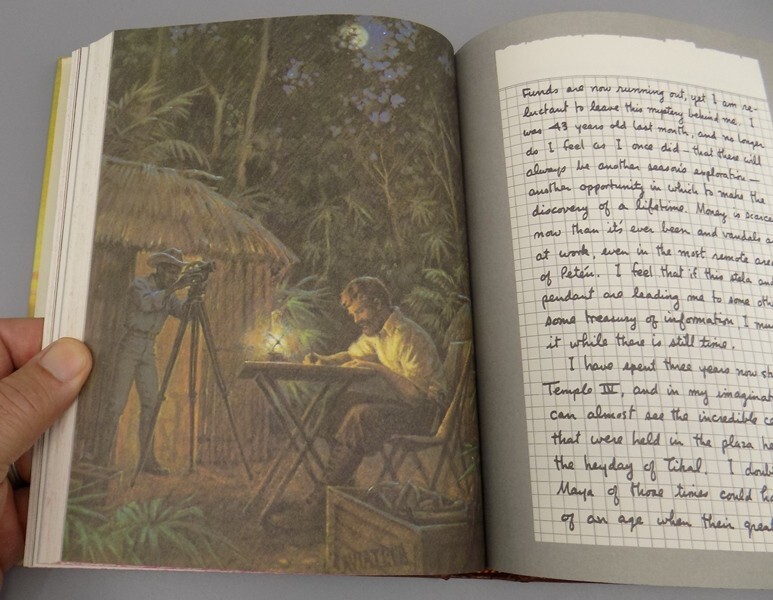 Funds are now running out, yet I am re-
luctant to leave this mystery behind me. I
was 43 years old last month, and no longer
do I feel as I once did — that there will
always be another season's exploration —
another opportunity in which to make the
discovery of a lifetime. Money is scarce
now than it's ever been and vandals a
at work, even in the most remote area
of Petén. I feel that if this stela and
pendant are leading me to some oth
some treasury of information I mus
it while there is still time.
I have spent three years now st
Temple IV, and in my imaginat
can almost see the incredible ce
that were held in the plaza he
the heyday of Tikal. I doubt
Maya of those times could ha
of an age when their great
AVIATECA